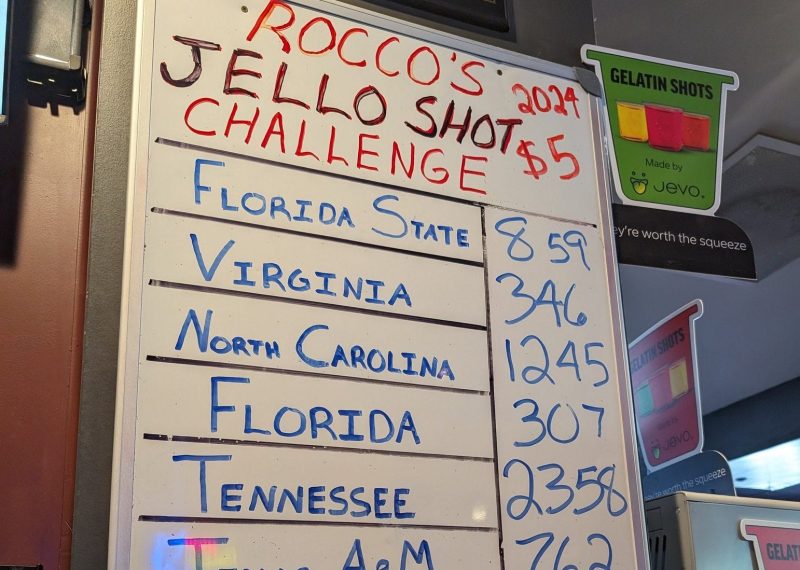 ROCCO'S 2024
JELLO SHOT
CHALLENGE $5
FLORIDA STATE 859
VIRGINIA 346
NORTH CAROLINA 1245
FLORIDA 307
TENNESSEE 2358
A&M 762
GELATIN SHOTS
Made by
Jevo.
're worth the squeeze
GELATIN SHOTS
Made by
Jevo.
worth the squeeze